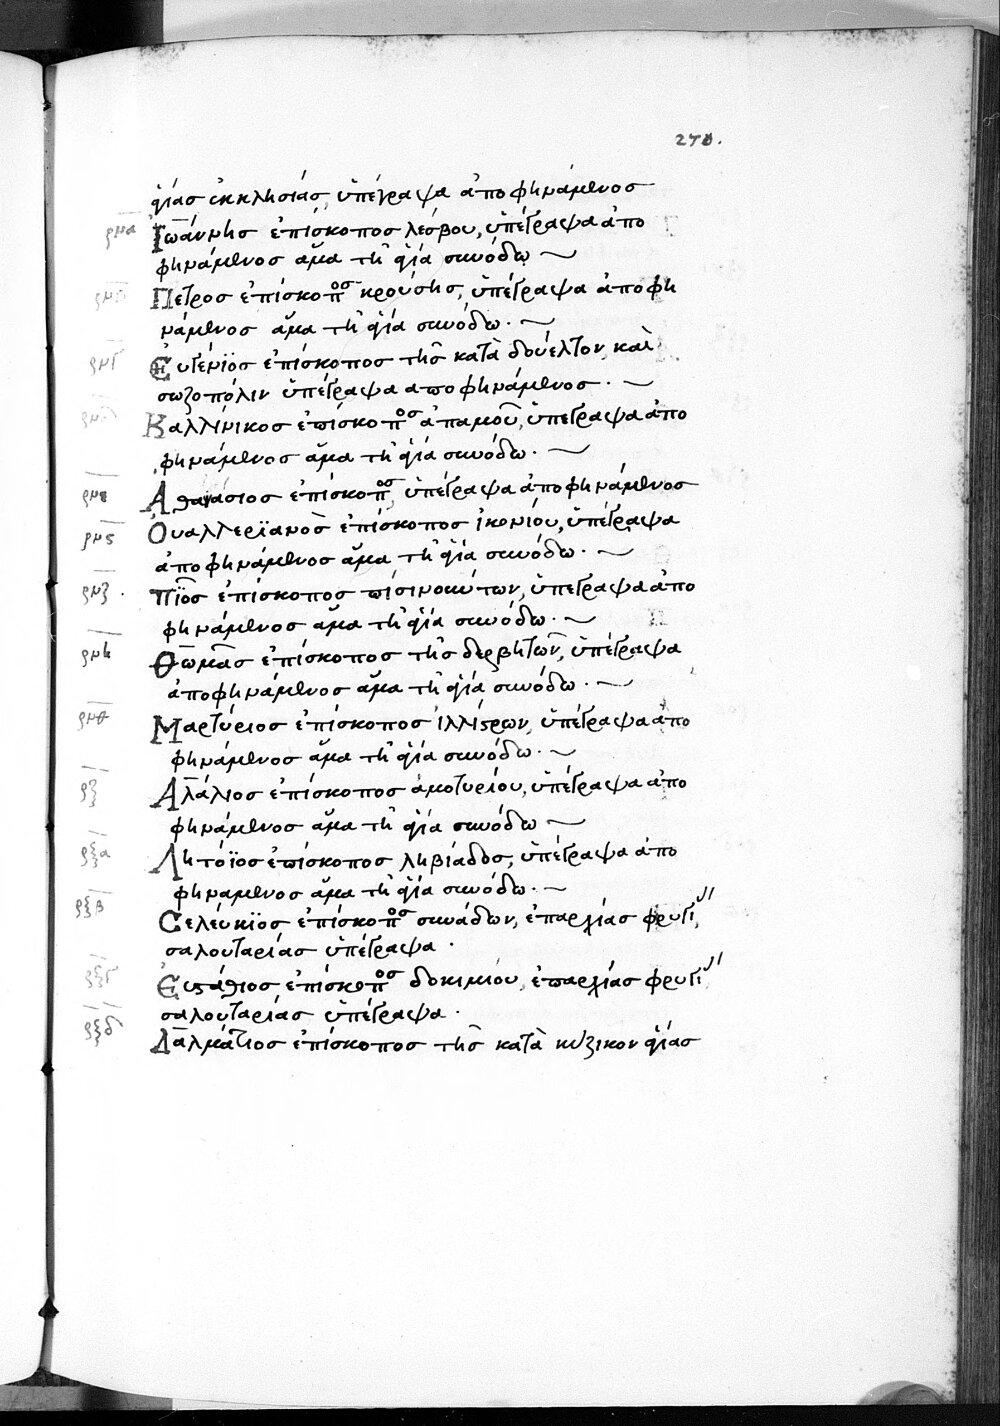 270.
ἁγίας ἐκκλησίας, ὑπέγραψα ἀποφηνάμενοσ
ρμα Ἰωάννησ ἐπίσκοποσ λέσβου, ὑπέγραψα ἀπο
φηνάμενοσ ἅμα τῆ ἁγία συνόδω
Πέτροσ ἐπίσκοπος κρούσης, ὑπέγραψα ἀποφη
νάμενοσ ἅμα τῆ ἁγία συνόδω.
ρμγ Εὐγένϊοσ ἐπίσκοποσ τῆσ κατὰ δούελτον καὶ
σωζοπόλιν ὑπέγραψα αποφηνάμενοσ.
Καλλίνικοσ ἐπίσκοπος ἀπαμοῦ, ὑπέγραψα ἀπο
φηνάμενοσ ἅμα τῆ ἁγία συνόδω.
ρμε Ἀθανάσιοσ ἐπίσκοπος, ὑπέγραψα ἀποφηνάμενοσ
ρμς Οὐαλλεριανοσ ἐπίσκοποσ ἰκονίου, ὑπέγραψα
ἀποφηνάμενοσ ἅμα τῆ ἁγία συνόδω.
ρμζ. Πῖοσ ἐπίσκοποσ πισινούντων, ὑπέγραψα ἀπο
φηνάμενοσ ἅμα τῆ ἁγία συνόδω.
ρμη Θωμᾶσ ἐπίσκοποσ τῆσ δερβητῶν, ὑπέγραψα
ἀποφηνάμενοσ ἅμα τῆ ἁγία συνόδω.
ρμθ Μαρτύριοσ ἐπίσκοποσ ἰλλίστρων, ὑπέγραψα ἀπο
φηνάμενοσ ἅμα τῆ ἁγία συνόδω.
ρξ Ἀλάλιοσ ἐπίσκοποσ ἀμοτυρίου, ὑπέγραψα ἀπο
φηνάμενοσ ἅμα τῆ ἁγία συνόδω
ρξα Λητόϊοσ ἐπίσκοποσ ληβιάδοσ, ὑπέγραψα ἀπο
φηνάμενοσ ἅμα τῆ ἁγία συνόδω.
ρξβ Σελεύκϊοσ ἐπίσκοπος συνάδων, ἐπαρχίασ φρυγι
σαλουταρίασ ὑπέγραψα.
ρξγ Εὐστάθιοσ ἐπίσκοπος δοκιμίου, ἐπαρχίασ φρυγι
σαλουταρίασ ὑπέγραψα.
ρξδ Δαλμάτιοσ ἐπίσκοποσ τῆσ κατὰ κύζικον ἁγίασ